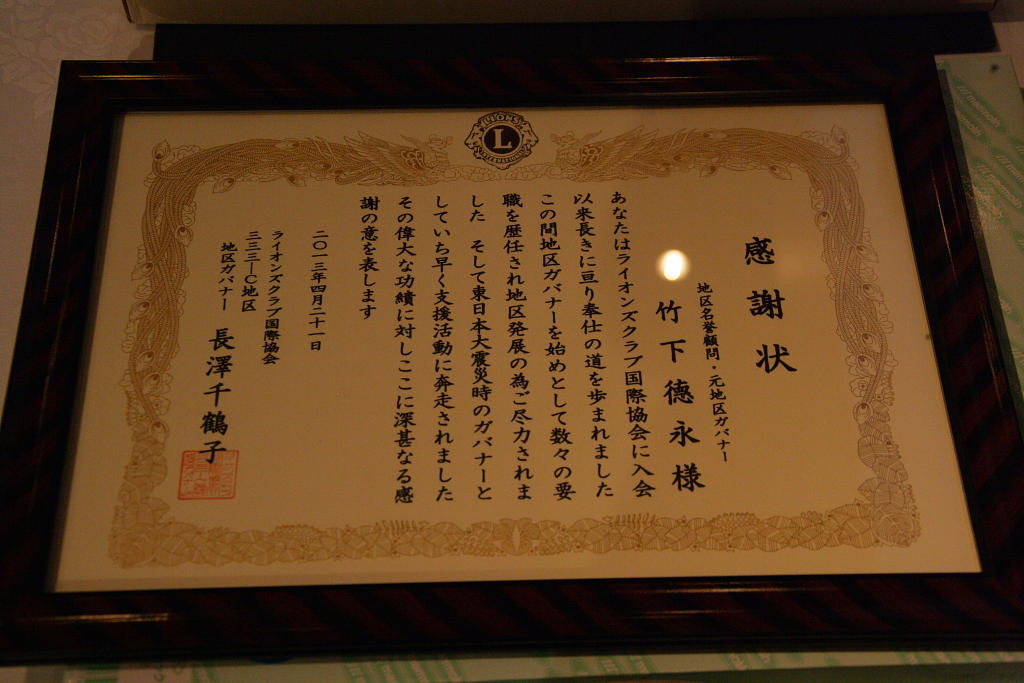 LIONS
L
INTERNATIONAL
感謝状
地区名誉顧問・元地区ガバナー
竹下徳永様
あなたはライオンズクラブ国際協会に入会
以来長きに亘り奉仕の道を歩まれました
この間地区ガバナーを始めとして数々の要
職を歴任され地区発展の為ご尽力されま
した そして東日本大震災時のガバナーと
していち早く支援活動に奔走されました
その偉大な功績に対しここに深甚なる感
謝の意を表します
二〇一三年四月二十一日
ライオンズクラブ国際協会
三三三―C地区
地区ガバナー 長澤千鶴子